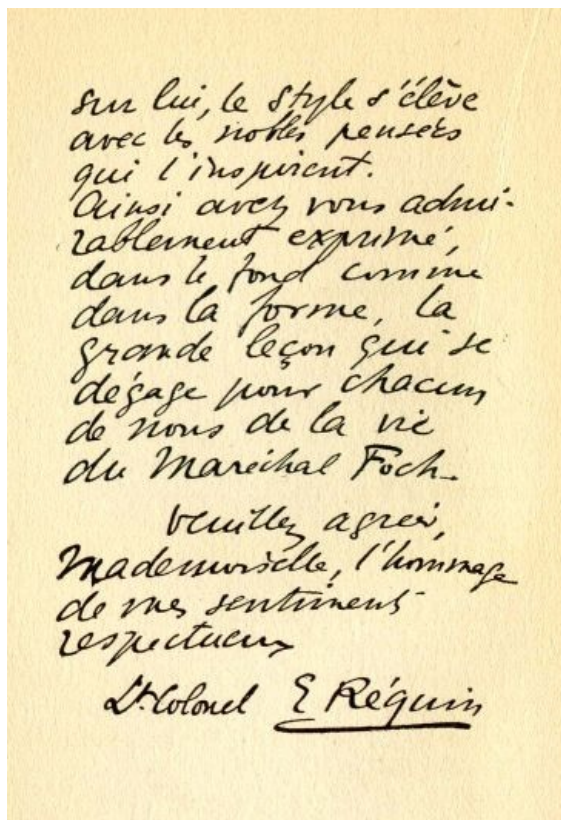 sur lui, le style s'élève
avec les nobles pensées
qui l'inspirent.
Ainsi avez vous admi-
rablement exprimé,
dans le fond comme
dans la forme, la
grande leçon qui se
dégage pour chacun
de nous de la vie
du Maréchal Foch.
Veuillez agréer,
Mademoiselle, l'hommage
de mes sentiments
respectueux
Lt Colonel E Réquin